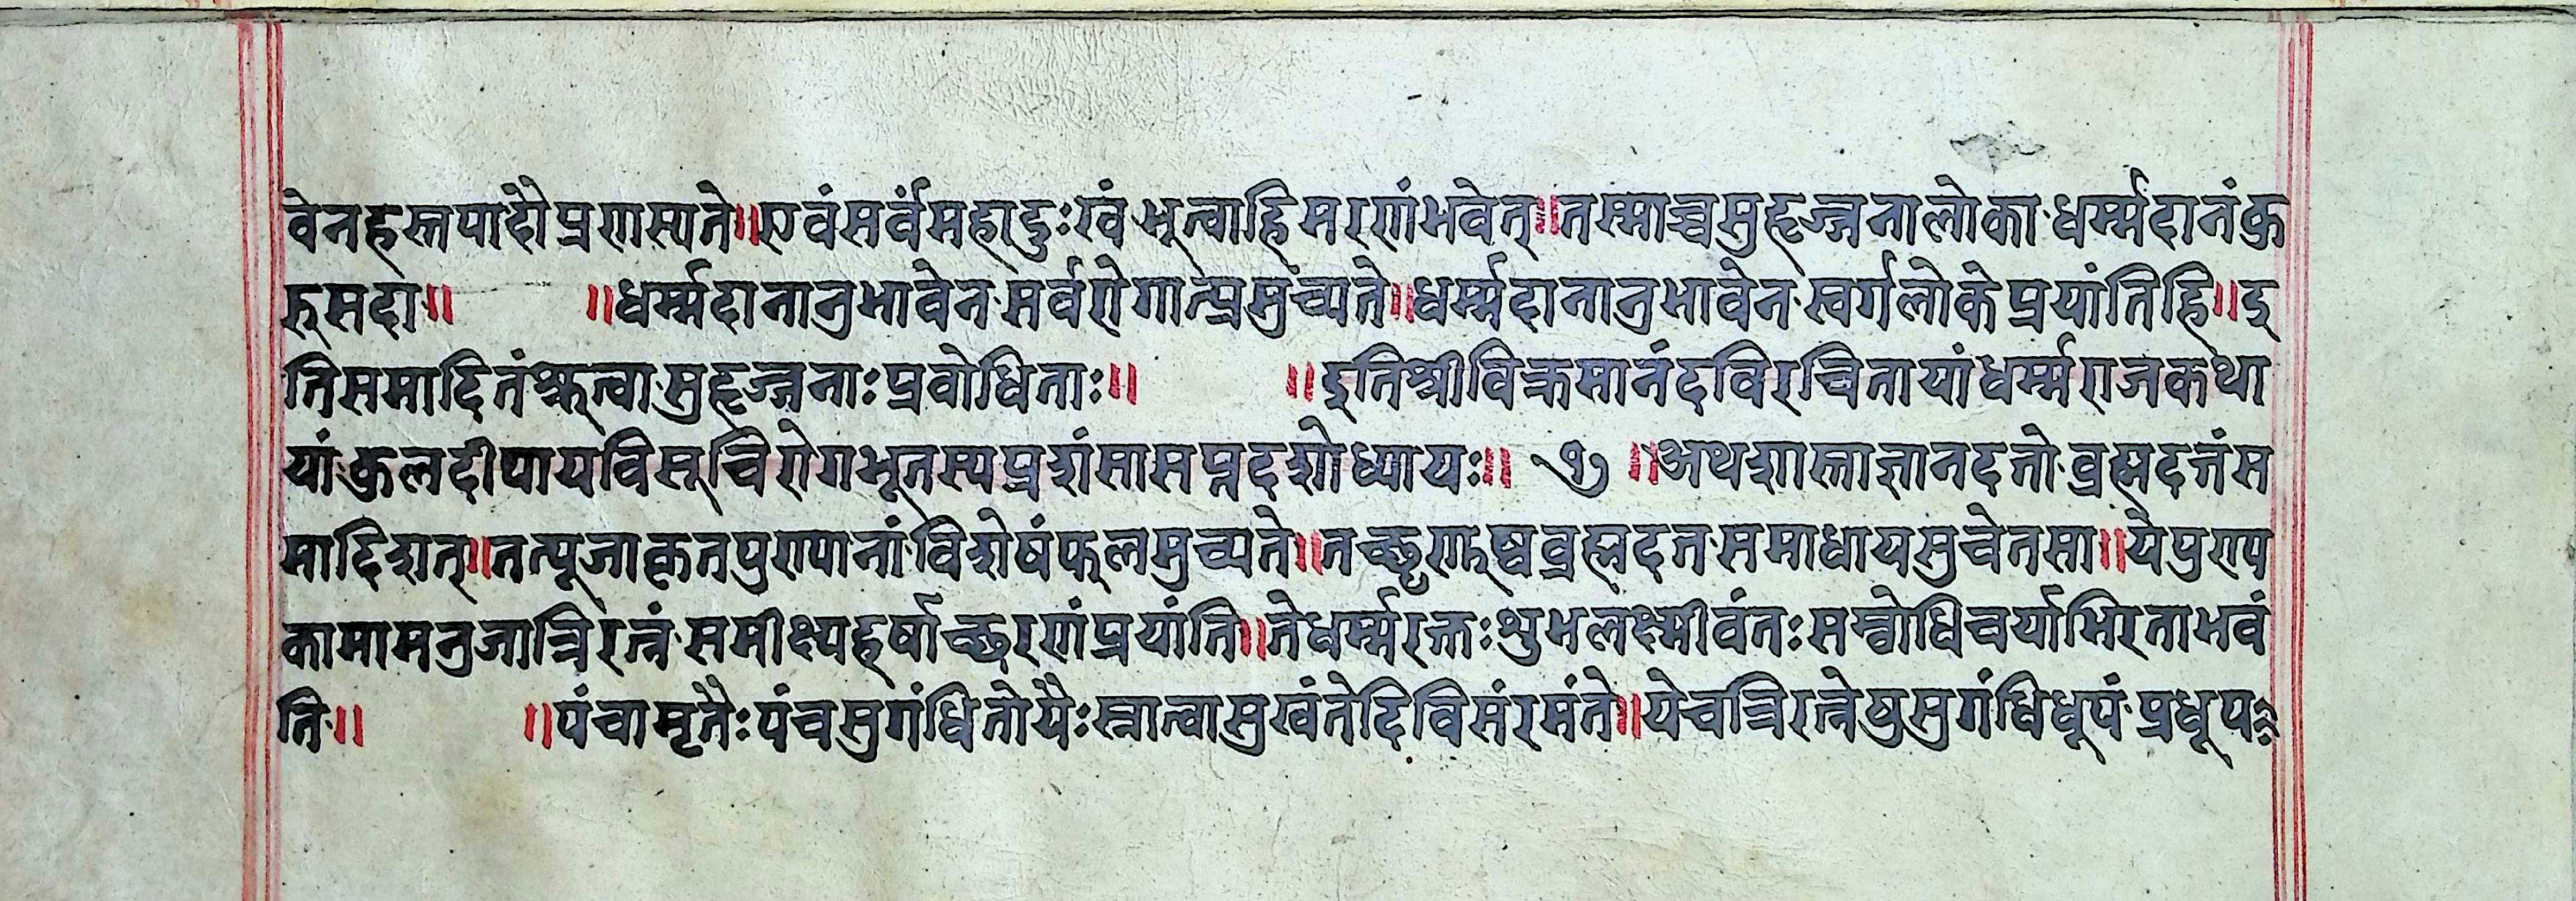 वेनहस्तपादौप्रणस्यते॥एवंसर्वंमहादुःखंभूत्वाहिमरणंभवेत्॥तस्माच्चसुहृज्जनालोकाधर्म्मदानंकु
रुसदा॥ ॥धर्म्मदानानुभावेनसर्वरोगात्प्रमुंच्यते॥धर्म्मदानानुभावेनस्वर्गलोकेप्रयांतिहि॥इ
तिसमादितंश्रुत्वासुहृज्जनाःप्रवोधिताः॥ ॥इतिश्रीविक्रमानंदविरचितायांधर्म्मराजकथा
यांकुलदीपायविसूचिरोगभूतस्यप्रशंसासप्तदशोध्यायः॥ ७ ॥अथशास्ताज्ञानदत्तोव्रह्मदत्तंस
मादिशत्॥तत्पूजाकृतपुण्यानांविशेषंफलमुच्यते॥तच्छृणुष्वव्रह्मदत्तसमाधायसुचेतसा॥येपुण्य
कामामनुजात्रिरत्नंसमीक्ष्यहर्षाच्छरणंप्रयांति॥तेधर्म्मरक्तःशुभलक्ष्मीवंतःसम्वोधिचर्याभिरताभवं
ति॥ ॥पंचामृतैःपंचसुगंधितोयैःस्नात्वासुखंतेदिविसंरमंते॥येचत्रिरत्नेषुसुगंधिधूपंप्रधूप